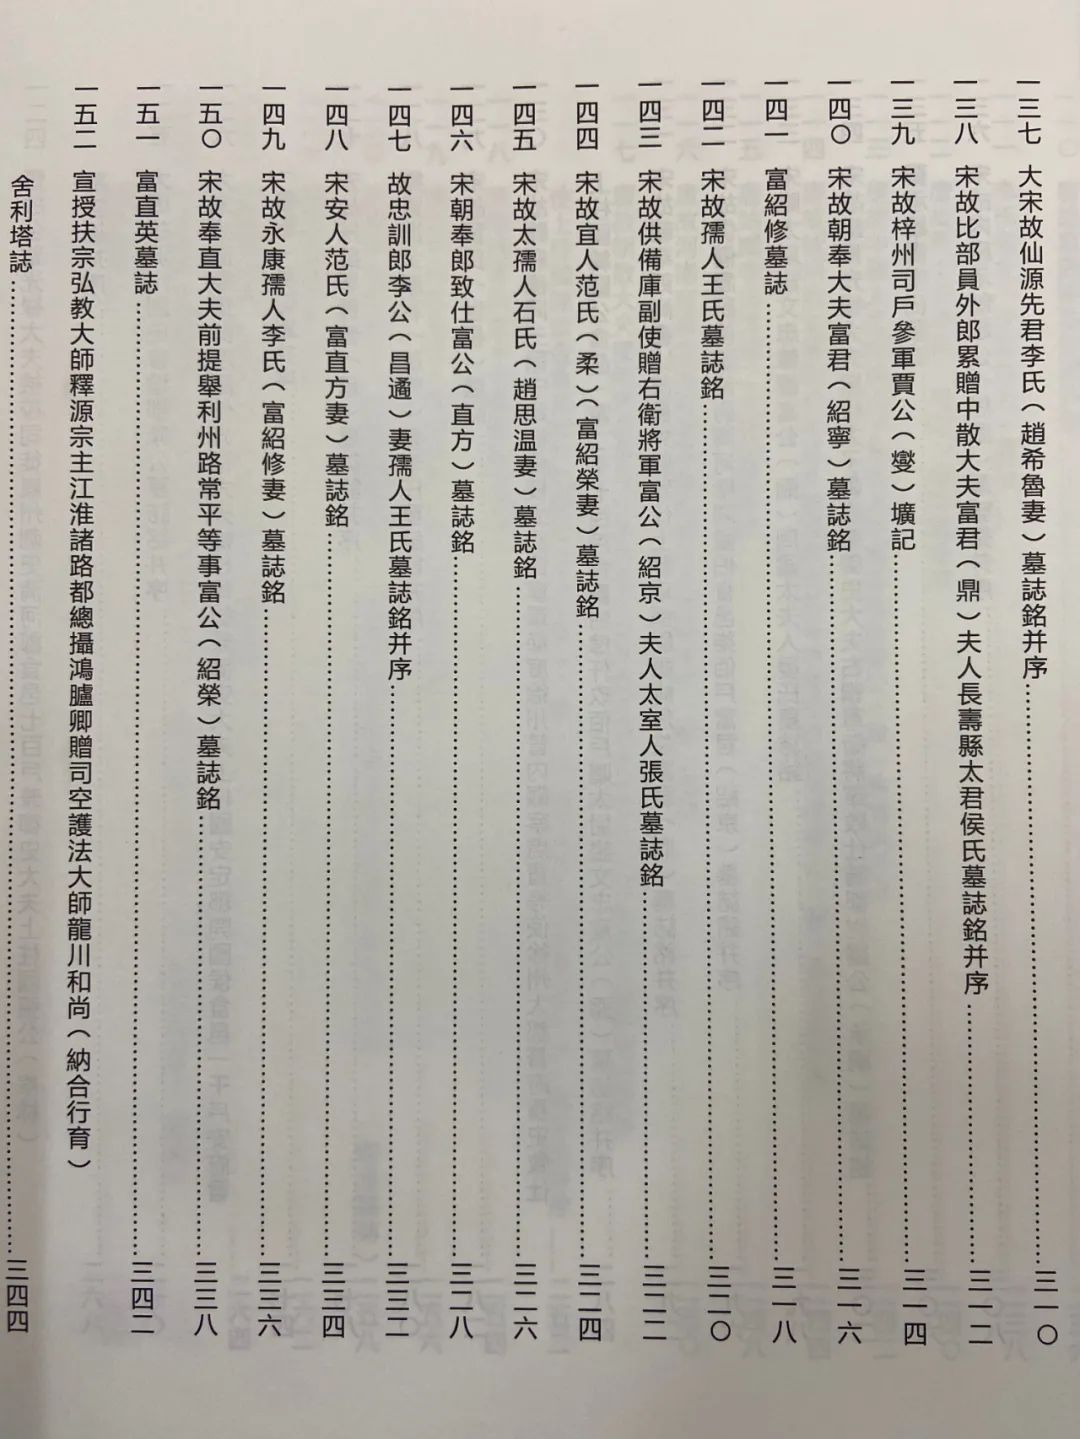 一三七 大宋故仙源先君李氏（趙希魯妻）墓誌銘并序……三一〇
一三八 宋故比部員外郎累贈中散大夫富君（鼎）夫人長壽縣太君侯氏墓誌銘并序……三一二
一三九 宋故梓州司戶參軍賈公（燮）壙記……三一四
一四〇 宋故朝奉大夫富君（紹寧）墓誌銘……三一六
一四一 富紹修墓誌……三一八
一四二 宋故孺人王氏墓誌銘……三二〇
一四三 宋故供備庫副使贈右衛將軍富公（紹京）夫人太室人張氏墓誌銘……三二二
一四四 宋故宜人范氏（柔）（富紹榮妻）墓誌銘……三二四
一四五 宋故太孺人石氏（趙思温妻）墓誌銘……三二六
一四六 宋朝奉郎致仕富公（直方）墓誌銘……三二八
一四七 故忠訓郎李公（昌遹）妻孺人王氏墓誌銘并序……三三二
一四八 宋安人范氏（富直方妻）墓誌銘……三三四
一四九 宋故永康孺人李氏（富紹修妻）墓誌銘……三三六
一五〇 宋故奉直大夫前提舉利州路常平等事富公（紹榮）墓誌銘……三三八
一五一 富直英墓誌……三四二
一五二 宣授扶宗弘教大師釋源宗主江淮諸路都總攝鴻臚卿贈司空護法大師龍川和尚（納合行育）
舍利塔誌……三四四